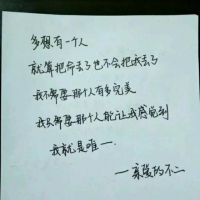 多想有一个人
就算把命丢了也不会把我丢了
我不需要那个人有多完美
我只需要那个人能让我感觉到
我就是唯一.
的不二